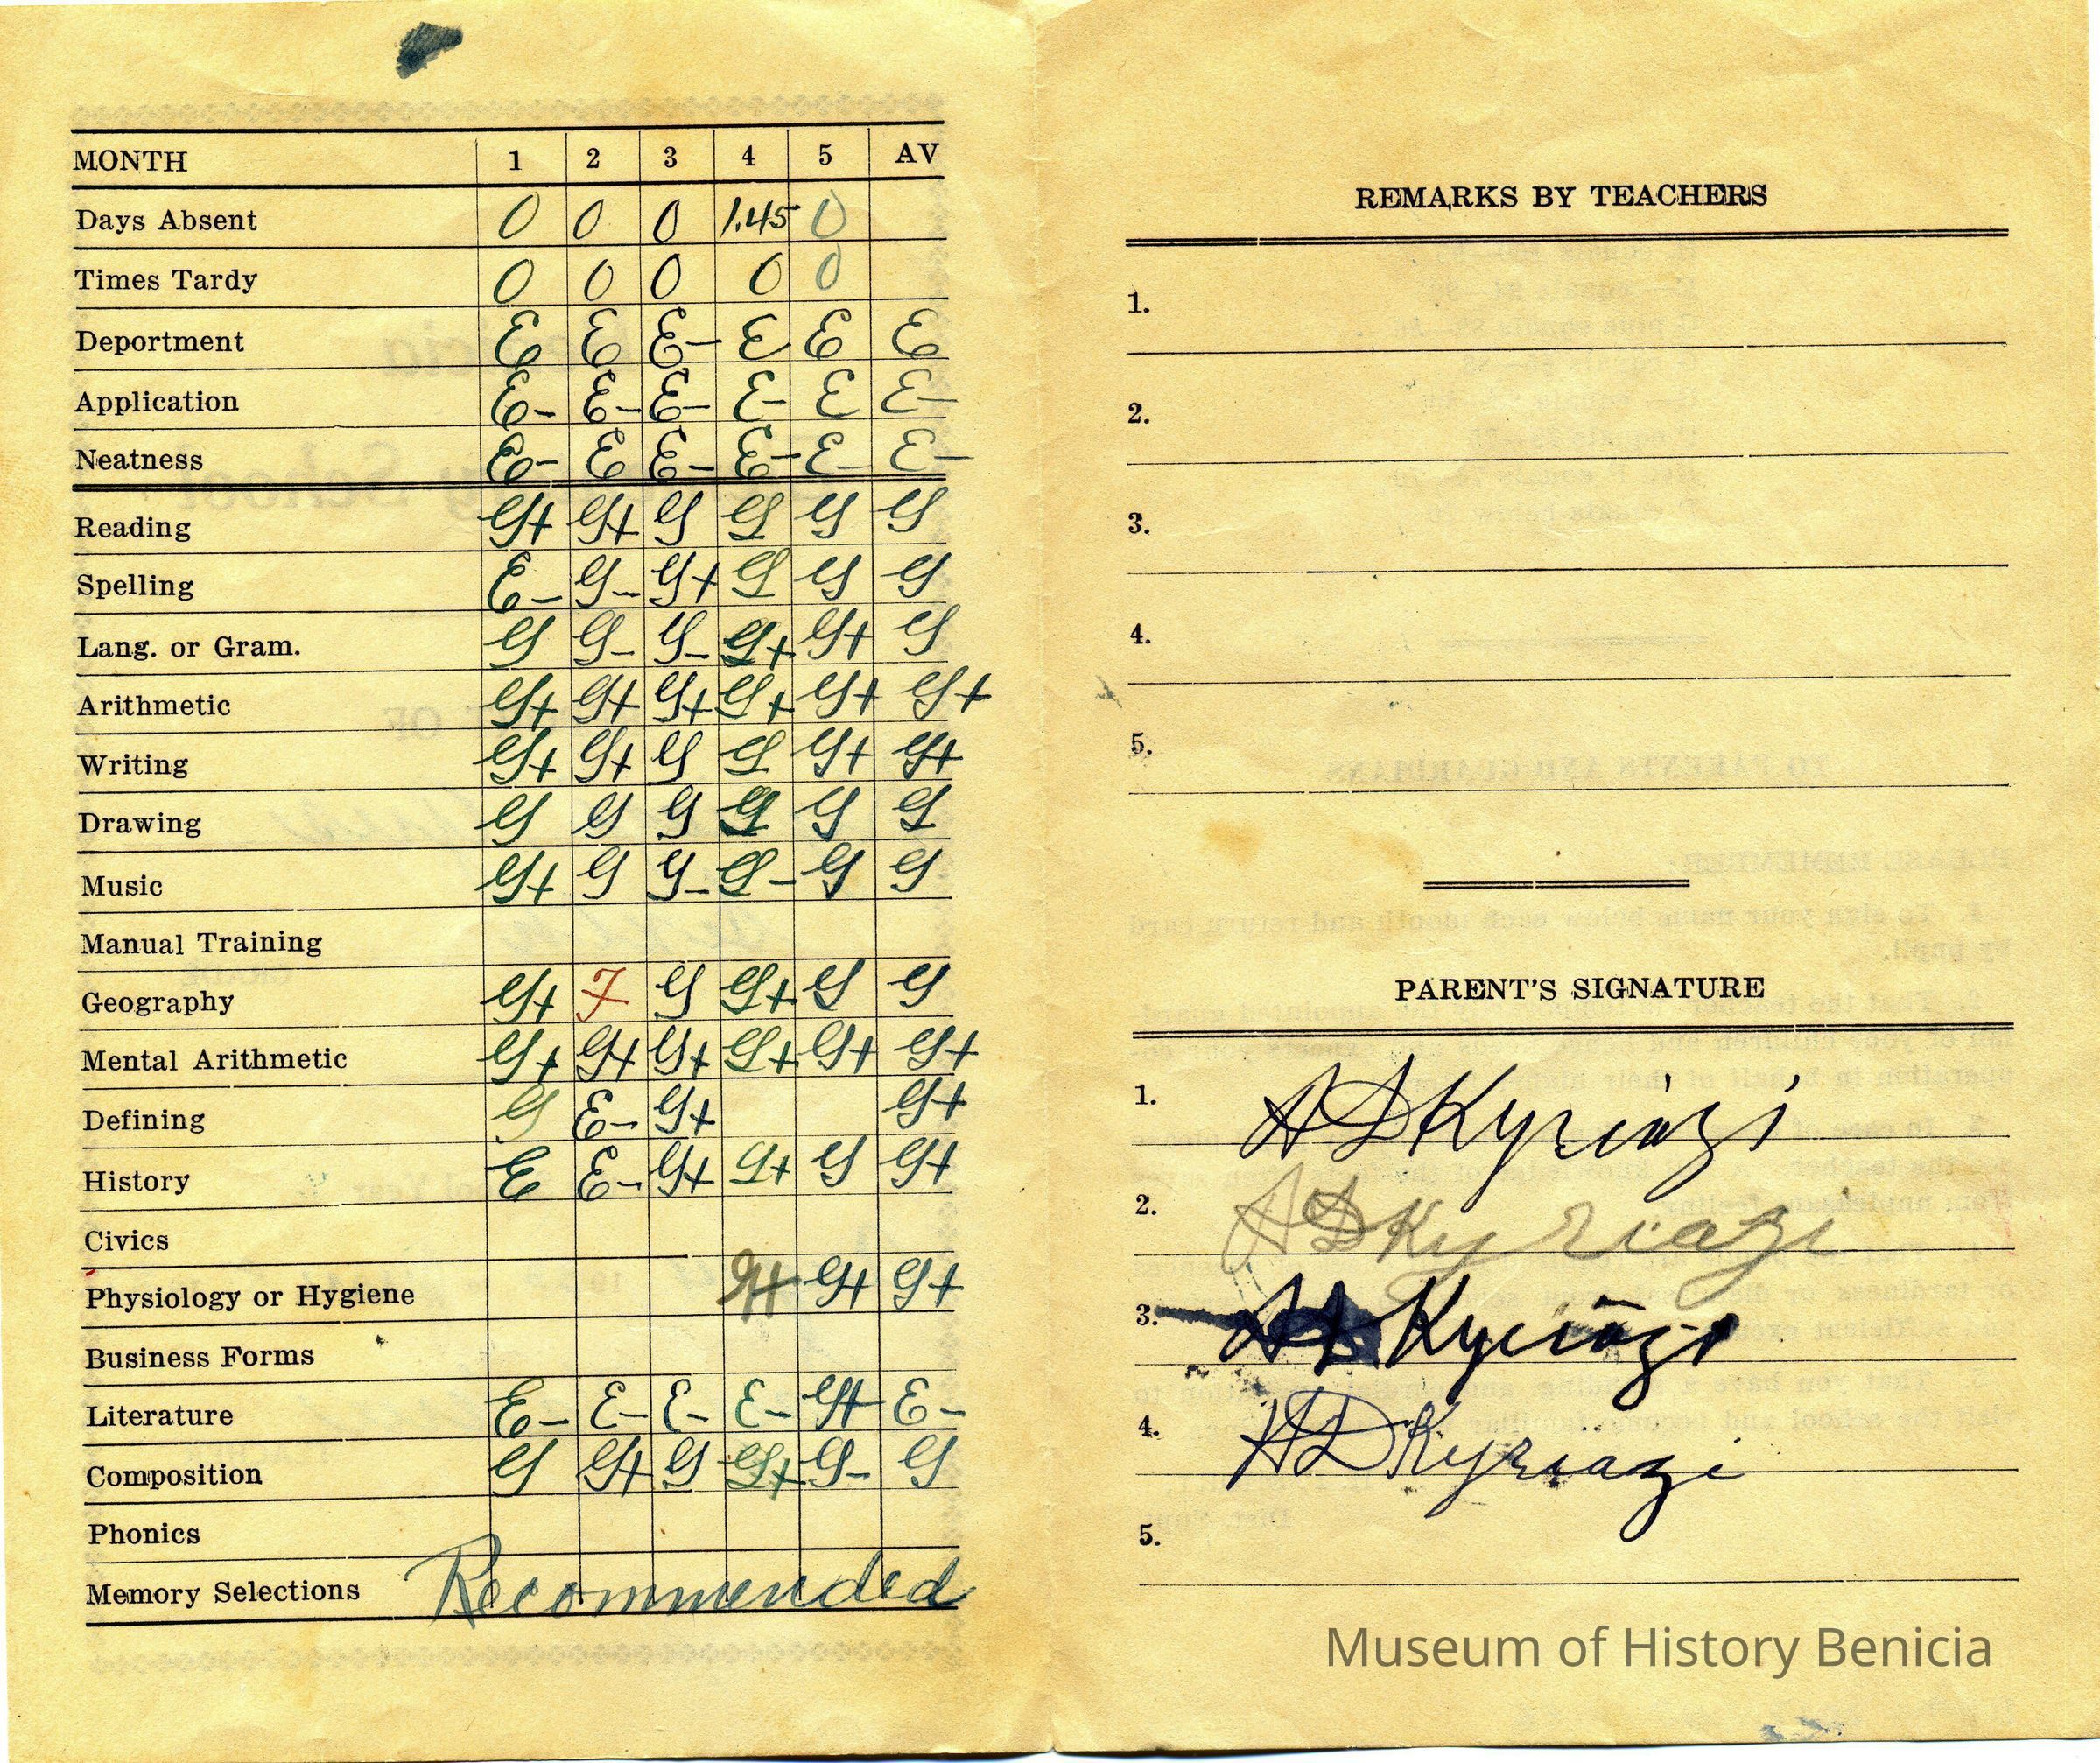 MONTH 1 2 3 4 5 AV
Days Absent 0 0 0 1.45 0
Times Tardy 0 0 0 0 0
Deportment E E E- E E E
Application E- E- E- E- E E-
Neatness E- E E- E- E- E-
Reading G+ G+ G G G G
Spelling E- G- G+ G G G
Lang. or Gram. G G- G- G+ G+ G
Arithmetic G+ G+ G+ G+ G+ G+
Writing G+ G+ G G G+ G+
Drawing G G G G G G
Music G+ G G- G- G G
Manual Training
Geography G+ F G G+ G G
Mental Arithmetic G+ G+ G+ G+ G+ G+
Defining G E- G+ G+
History E E- G+ G+ G G+
Civics
Physiology or Hygiene G+ G+ G+
Business Forms
Literature E- E- E- E- G+ E-
Composition G G+ G G+ G- G
Phonics
Memory Selections Recommended
REMARKS BY TEACHERS
1.
2.
3.
4.
5.
PARENT'S SIGNATURE
1. AD Kyriazi
2. AD Kyriazi
3. AD Kyriazi
4. AD Kyriazi
5.
Museum of History Benicia